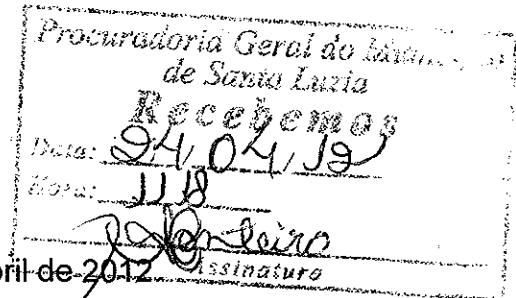 Procuradoria Geral do
de Santa Luzia
Recebemos
Data: 24, 04, 12
Hora: 11 18
Assinatura
ril de 2012